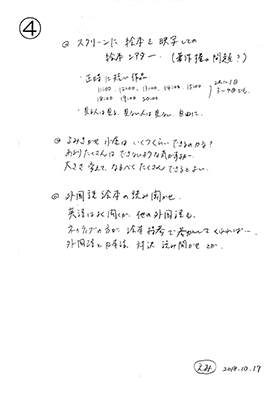 ④
◎ スクリーンに 絵本を 映写しての
絵本シアター。(著作権の問題?)
・正時に 短い作品
11:00. 12:00. 13:00. 14:00. 15:00
18:00. 19:00. 20:00
・見る人は見る、見ない人は見ない。自由に。
◎ よみきかせ 小屋は いくつくらいできるのかな?
あまりたくさんは できないような気がするが…
大きさ 考えて、なるべく たくさん できるとよい。
◎ 外国語 絵本の 読み聞かせ。
英語はよく聞くが、他の外国語も。
ネイティブの方が 絵本持参で 参加して くれれば…
外国語と日本語、対訳 読み聞かせ とか。
2018.10.17